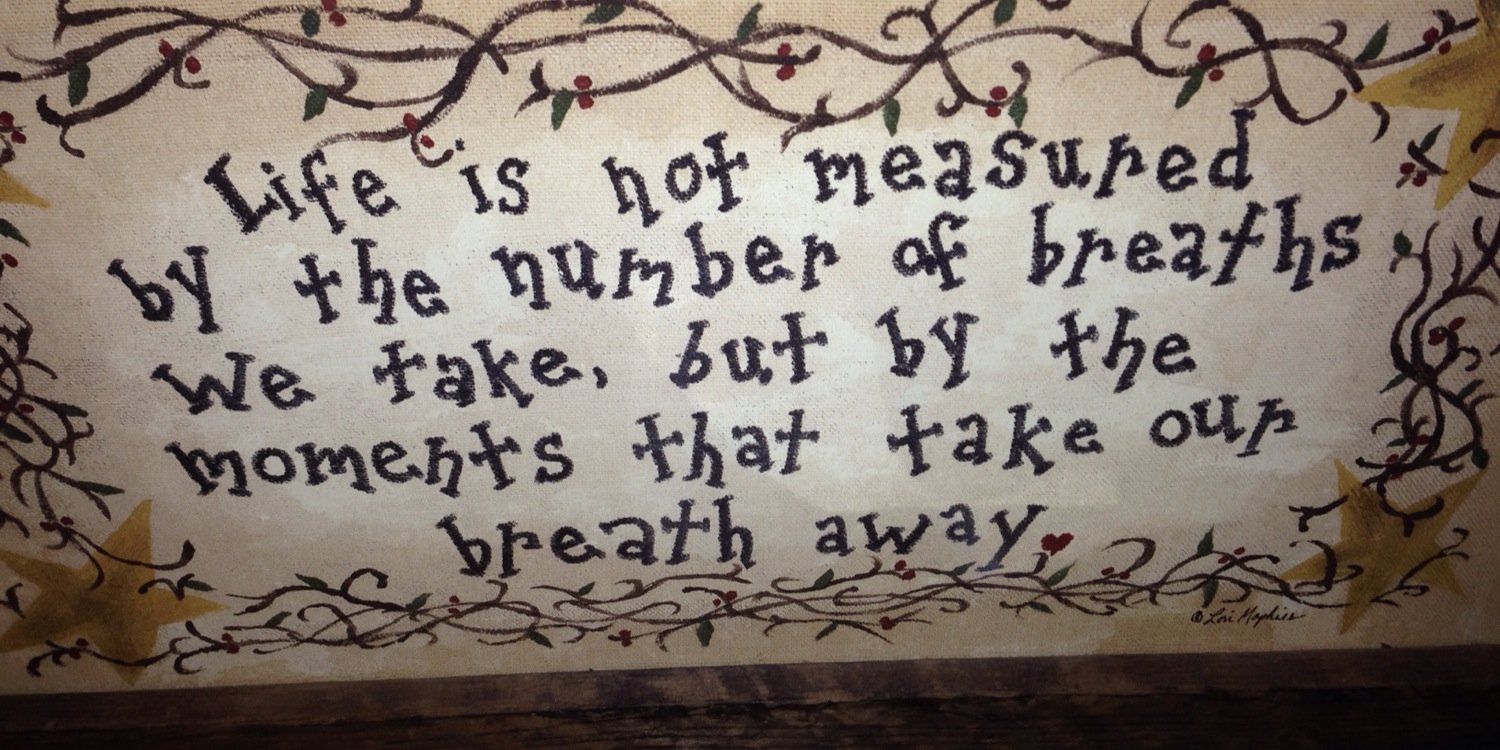 Life is not measured
by the number of breaths
we take, but by the
moments that take our
breath away
© Lori Maphies